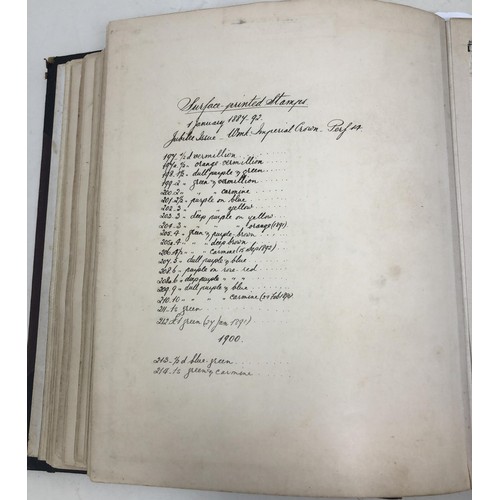 Surface-printed Stamps
1 January 1887-92.
Jubilee Issue - Wmk: Imperial Crown - Perf 14.
197. ½ d vermillion
197a. ½ " orange vermillion
198. 1½ " dull purple & green
199. 2 " green & vermillion
200. 2 " " " carmine
201. 2½ " purple on blue
202. 3 " " " yellow
203. 3 " deep purple on yellow
204. 3 " " " " orange (1891)
205. 4 " green & purple-brown
205a. 4 " " " deep brown
206. 4½ " " " carmine (15 Sep 1892)
207. 5 " dull purple & blue
208. 6 " purple on rose-red
208a. 6 " deep purple " " "
209. 9 " dull purple & blue
210. 10 " " " " carmine
211. 1s green
212. £1 green (27 Jan 1891)
1900.
213. ½ d blue-green
214. 1s green & carmine